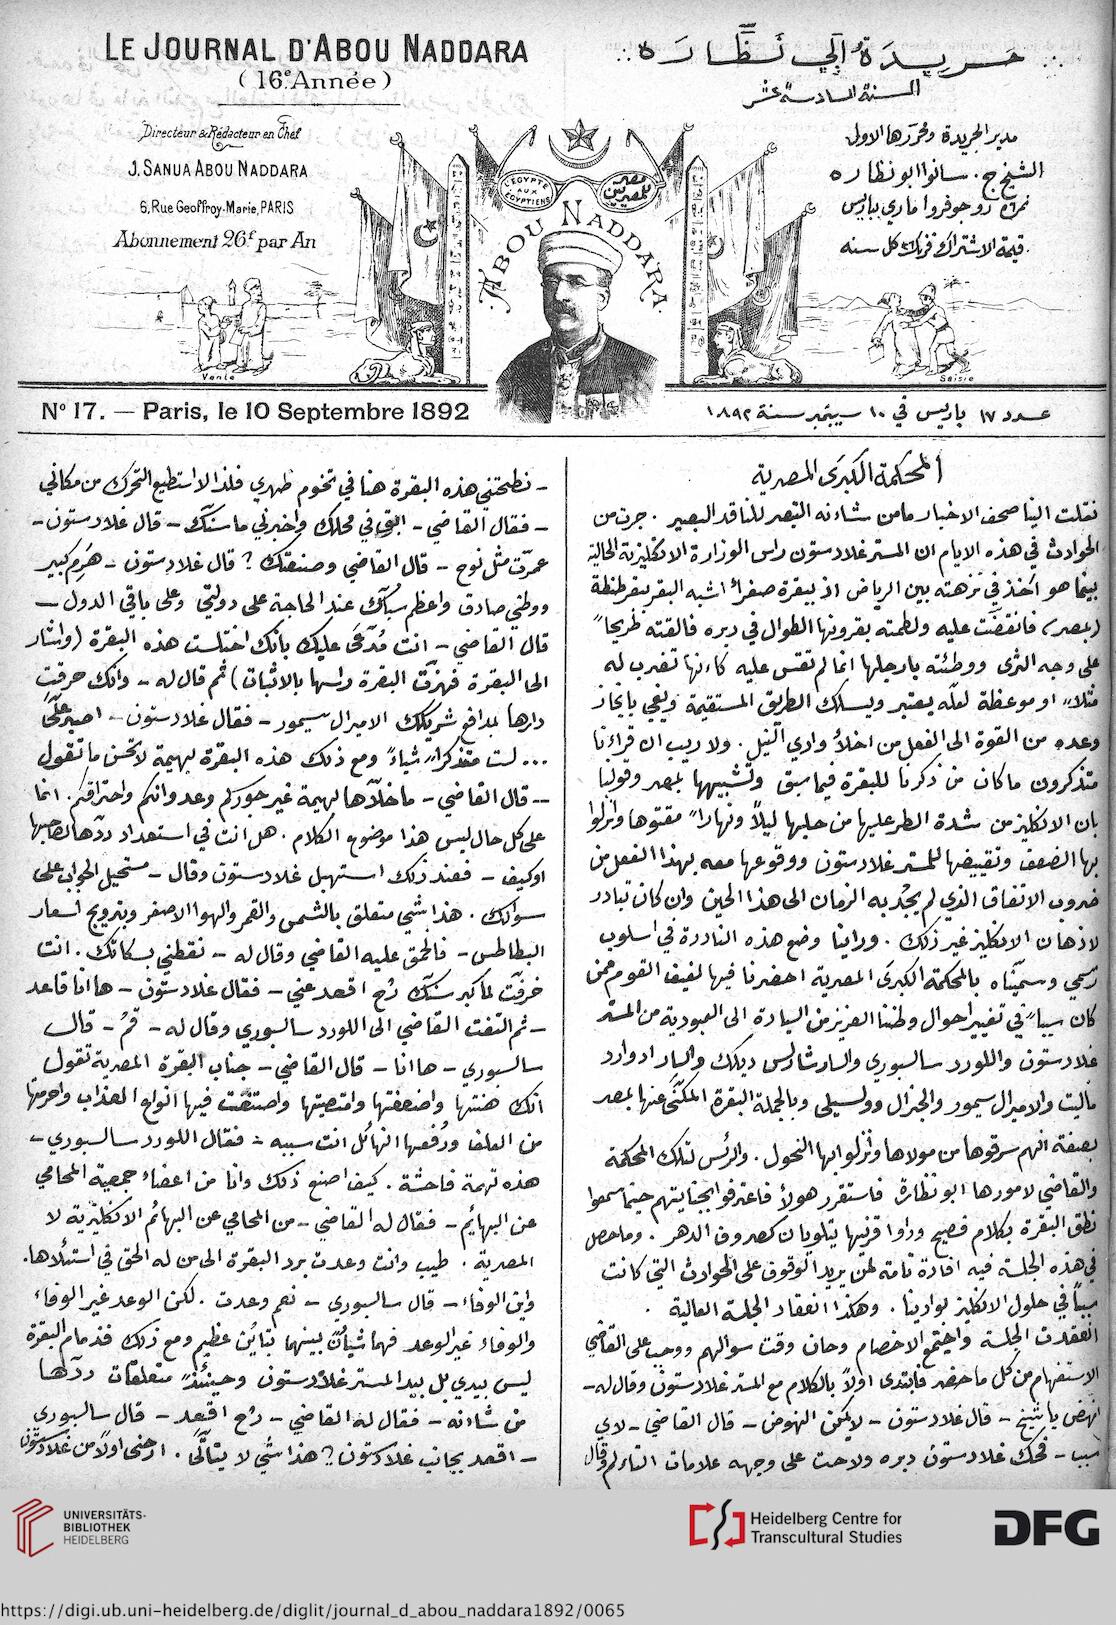 LE JOURNAL D'ABOU NADDARA
(16e Année)
Directeur & Rédacteur en Chef
J. SANUA ABOU NADDARA
6, Rue Geoffroy-Marie, PARIS
Abonnement 26f par An
جريدة ابي نظارة
السنة السادسة عشر
مدير الجريدة ومحررها الاول
الشيخ ج. سانوا ابو نظاره
نمرة ٦ رو جوفروا ماري بباريس
قيمة الاشتراك فرنك ٢٦ كل سنه
L'EGYPTE AUX EGYPTIENS
مصر للمصريين
ABOU NADDARA
Vente
Saisie
No 17. — Paris, le 10 Septembre 1892
عدد ١٧ باريس في ١٠ سبتمبر سنة ١٨٩٢
المحكمة الكبرى المصرية
نقلت الينا صحف الاخبار ما من شانه التبصر للناقد البصير . جرت من
الحوادث في هذه الايام ان المستر غلادستون راس الوزارة الانكليزية الحالية
بينما هو آخذ في نزهته بين الرياض اذ ببقرة صفرآ اشبه البقر ببقر طنطة
(بمصر) فانقضت عليه ولطمته بقرونها الطوال في دبره فالقته طريحاً
على وجه الثرى ووطئته بارجلها انما لم تقس عليه كانها تضرب له
مثلاً او موعظة لعله يعتبر ويسلك الطريق المستقيمة ويفي بايجاز
وعده من القوة الى الفعل من اخلآ وادي النيل . ولا ريب ان قراءنا
متذكرون ما كان من ذكرنا للبقرة فيما سبق وتشبيهها بمصر وقولنا
بان الانكليز من شدة الطر عليها من حلبها ليلاً ونهاراً مقتوها وانزلوا
بها الضعف
غلادستون ووقوعها معه بهذا الفعل من
ضروب الاتفاق الذي لم يجد به الزمان الى هذا الحين وان كان تبادر
لاذهان الانكليز غير ذلك . وراينا وضع هذه النادرة في اسلوب
رسمي وسميناه بالمحكمة الكبرى المصرية احضرنا فيها لفيف القوم ممن
كان سبباً في تغيير احوال وطننا العزيز من السيادة الى العبودية من المستر
غلادستون واللورد سالسبوري والسار شارلس ديلك والسار ادوارد
ماليت والاميرال سيمور والجنرال وولسيلي وبالجملة البقرة المكنى عنها بمصر
بصفة انهم سرقوها من مولاها وانزلوا بها النحول . والرئس لتلك المحكمة
والقاضي لامورها ابو نظارة فاستقرر هولآ فاعترفوا بجنايتهم حينما سمعوا
نطق البقرة بكلام فصيح وراوا قرنيها يتلويان كصروف الدهر . وما حصل
في هذه الجلسة فيه افادة تامة لمن يريد الوقوف على الحوادث التي كانت
سبباً في حلول الانكليز بوادينا . وهكذا انعقاد الجلسة العالية .
انعقدت الجلسة واجتمع الاخصام وحان وقت سوالهم ووجب على القاضي
الاستفهام من كل ما حضر فابتدى اولاً بالكلام مع المستر غلادستون وقال له –
انهض يا شيخ – قال غلادستون – لا يمكن النهوض – قال القاضي – لاي
سبب – فحك غلادستون دبره ولاحت على وجهه علامات التالم وقال
– نطحتني هذه البقرة هنا في تخوم ظهري فلذا لا استطيع التحرك من مكاني
– فقال القاضي – ابقى في محلك واخبرني ما سنك – قال غلادستون –
عمرت مثل نوح – قال القاضي وصنعتك ؟ قال غلادستون – هرم كبير
ووطني صادق واعظم سباك عند الحاجة على دولتي وعلى باقي الدول –
قال القاضي – انت مدعى عليك بانك اختلست هذه البقرة (واشار
الى البقرة فهزت البقرة راسها بالاثبات) ثم قال له – وانك حرقت
دارها بمدافع شريكك الاميرال سيمور – فقال غلادستون – اصبر علي
... لست متذكراً شياءً ومع ذلك هذه البقرة بهيمة لا تحسن ما تقول
– قال القاضي – ما خلاها بهيمة غير جوركم وعدوانكم واحتراقكم . انما
على كل حال ليس هذا موضوع الكلام . هل انت في استعداد ردها لصاحبها
اوكيف – فعند ذلك استهبل غلادستون وقال – مستحيل الجواب على
سوالك . هذا شي متعلق بالشمس والقمر والهوا الاصفر وبترويج اسعار
البطاطس – فالحمق عليه القاضي وقال له – نقطني بسكاتك . انت
خرفت لما كبر سنك رح اقعد عني – فقال غلادستون – ها انا قاعد
– ثم التفت القاضي الى اللورد سالسبوري وقال له – قم – قال
سالسبوري – ها انا – قال القاضي – جناب البقرة المصرية تقول
انك هنتها واضعفتها وامتصيتها
فيها انواع العذاب واحرمتها
من العلف
انت سببه – فقال اللورد سالسبوري –
هذه تهمة فاحشة . كيف اصنع ذلك وانا من اعضاء جمعية المحامي
عن البهايم – فقال له القاضي – من المحامي عن البهائم الانكليزية لا
المصرية . طيب وانت وعدت برد البقرة الى من له الحق في استلاها.
واين الوفاء – قال سالسبوري – نعم وعدت . لكن الوعد غير الوفاء
والوفاء غير الوعد فهما شيأن بينهما تباين عظيم ومع ذلك فذمام البقرة
ليس بيدي بل بيد المستر غلادستون وحينئذ متعلقات ردها
من شانه – فقال له القاضي – رح اقعد – قال سالسبوري
– اقعد بجانب غلادستون ؟ هذا شي لا يتاتى . ارحنى اولاً من غلادستون
UNIVERSITÄTS-
BIBLIOTHEK
HEIDELBERG
Heidelberg Centre for
Transcultural Studies
DFG
https://digi.ub.uni-heidelberg.de/diglit/journal_d_abou_naddara1892/0065